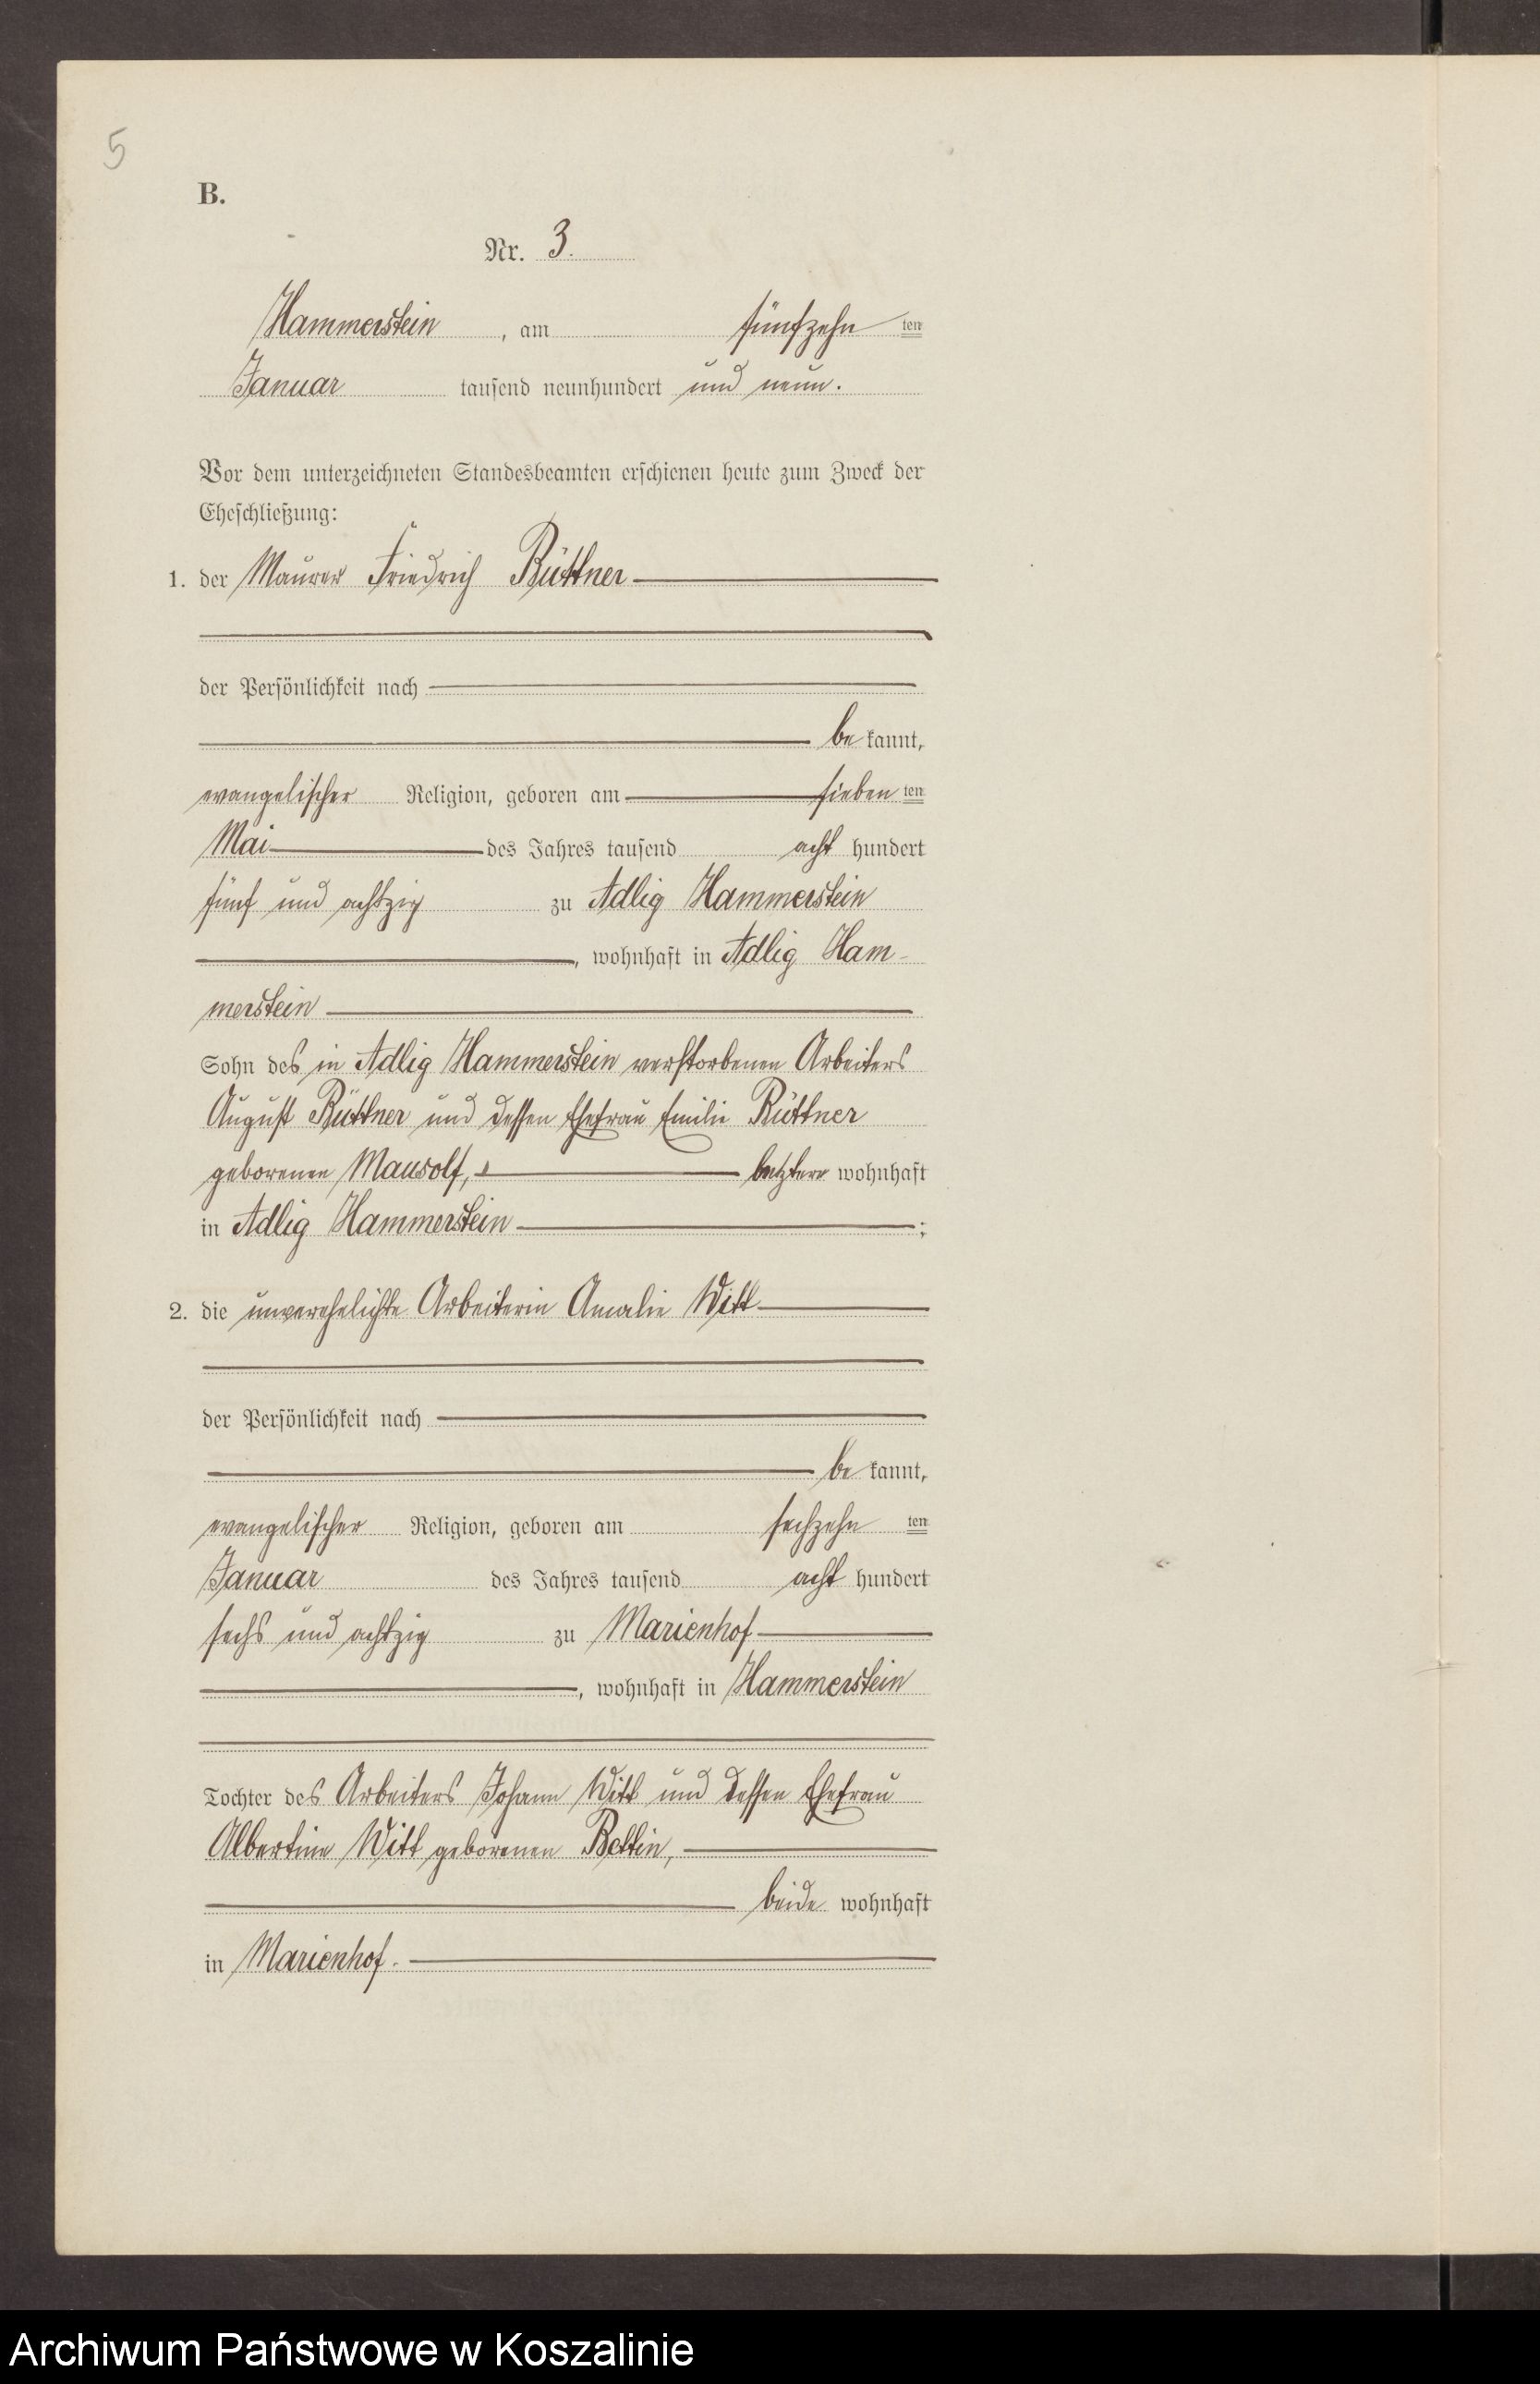 5
B.
Nr. 3.
Hammerstein, am fünfzehn ten
Januar tausend neunhundert und neun.
Vor dem unterzeichneten Standesbeamten erschienen heute zum Zweck der
Eheschließung:
1. der Maurer Friedrich Büttner
der Persönlichkeit nach
be kannt,
evangelischer Religion, geboren am sieben ten
Mai des Jahres tausend acht hundert
fünf und achtzig zu Adlig Hammerstein
, wohnhaft in Adlig Ham-
merstein
Sohn des in Adlig Hammerstein verstorbenen Arbeiters
August Büttner und dessen Ehefrau Emilie Büttner
geborenen Mausolf, letztere wohnhaft
in Adlig Hammerstein ;
2. die unverehelichte Arbeiterin Amalie Witt
der Persönlichkeit nach
be kannt,
evangelischer Religion, geboren am sechzehn ten
Januar des Jahres tausend acht hundert
sechs und achtzig zu Marienhof
, wohnhaft in Hammerstein
Tochter des Arbeiters Johann Witt und dessen Ehefrau
Albertine Witt geborenen Bettin,
beide wohnhaft
in Marienhof.
Archiwum Państwowe w Koszalinie